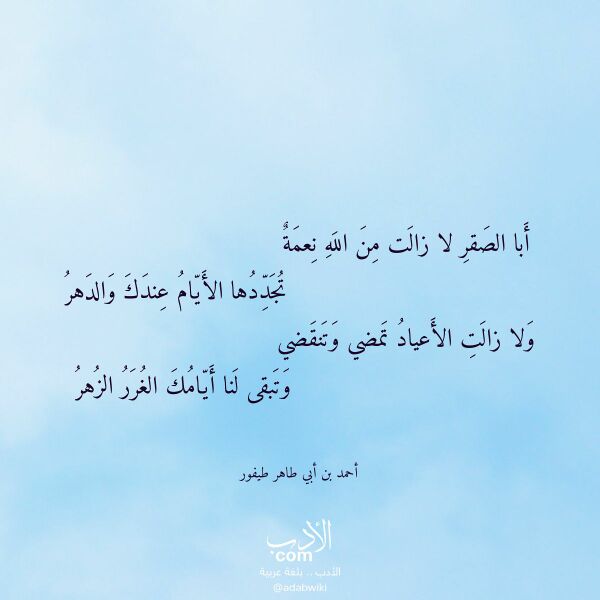 أَبا الصَقرِ لا زالَت مِنَ اللَهِ نِعمَةٌ
تُجَدِّدُها الأَيّامُ عِندَكَ وَالدَهرُ
وَلا زالَتِ الأَعيادُ تَمضي وَتَنقَضي
وَتَبقى لَنا أَيّامُكَ الغُرَرُ الزُهرُ
أحمد بن أبي طاهر طيفور
الأدب
com
الأدب .. بلغة عربية
@adabwiki